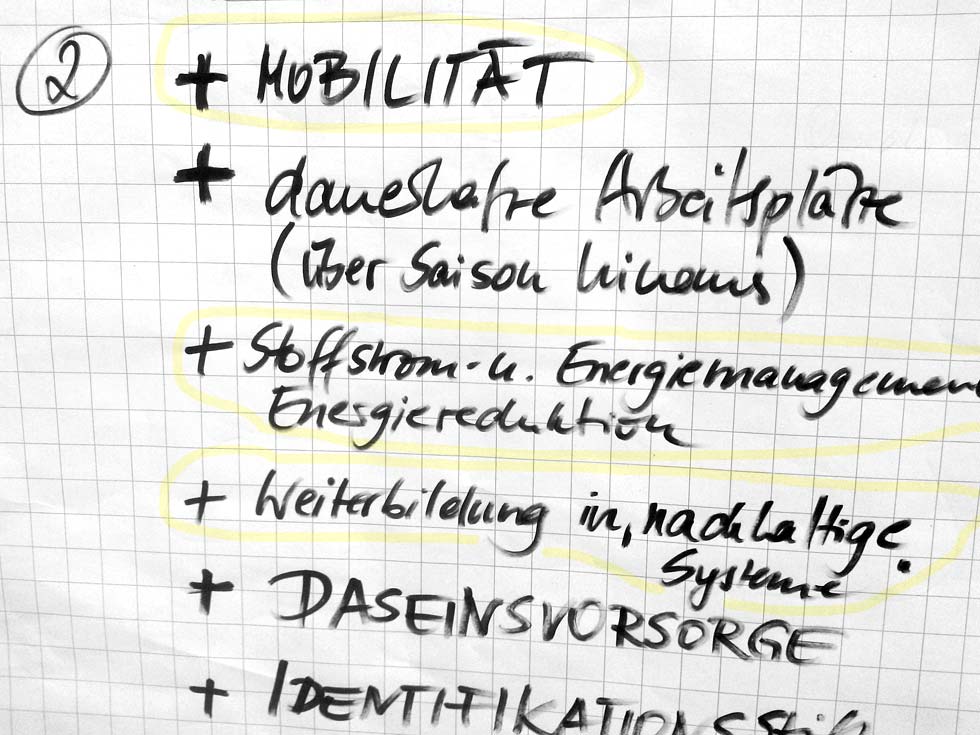 2
+ MOBILITÄT
+ dauerhafte Arbeitsplätze
(über Saison hinaus)
+ Stoffstrom- u. Energiemanagemen
Energiereduktion
+ Weiterbildung in "nachhaltige
Systeme"
+ DASEINSVORSORGE
+ IDENTIFIKATIONSstif